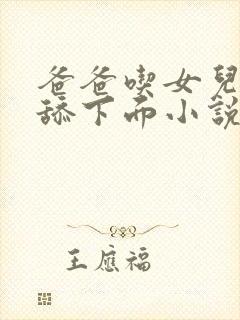 爸爸喫女兒
舔下面小說
王應福